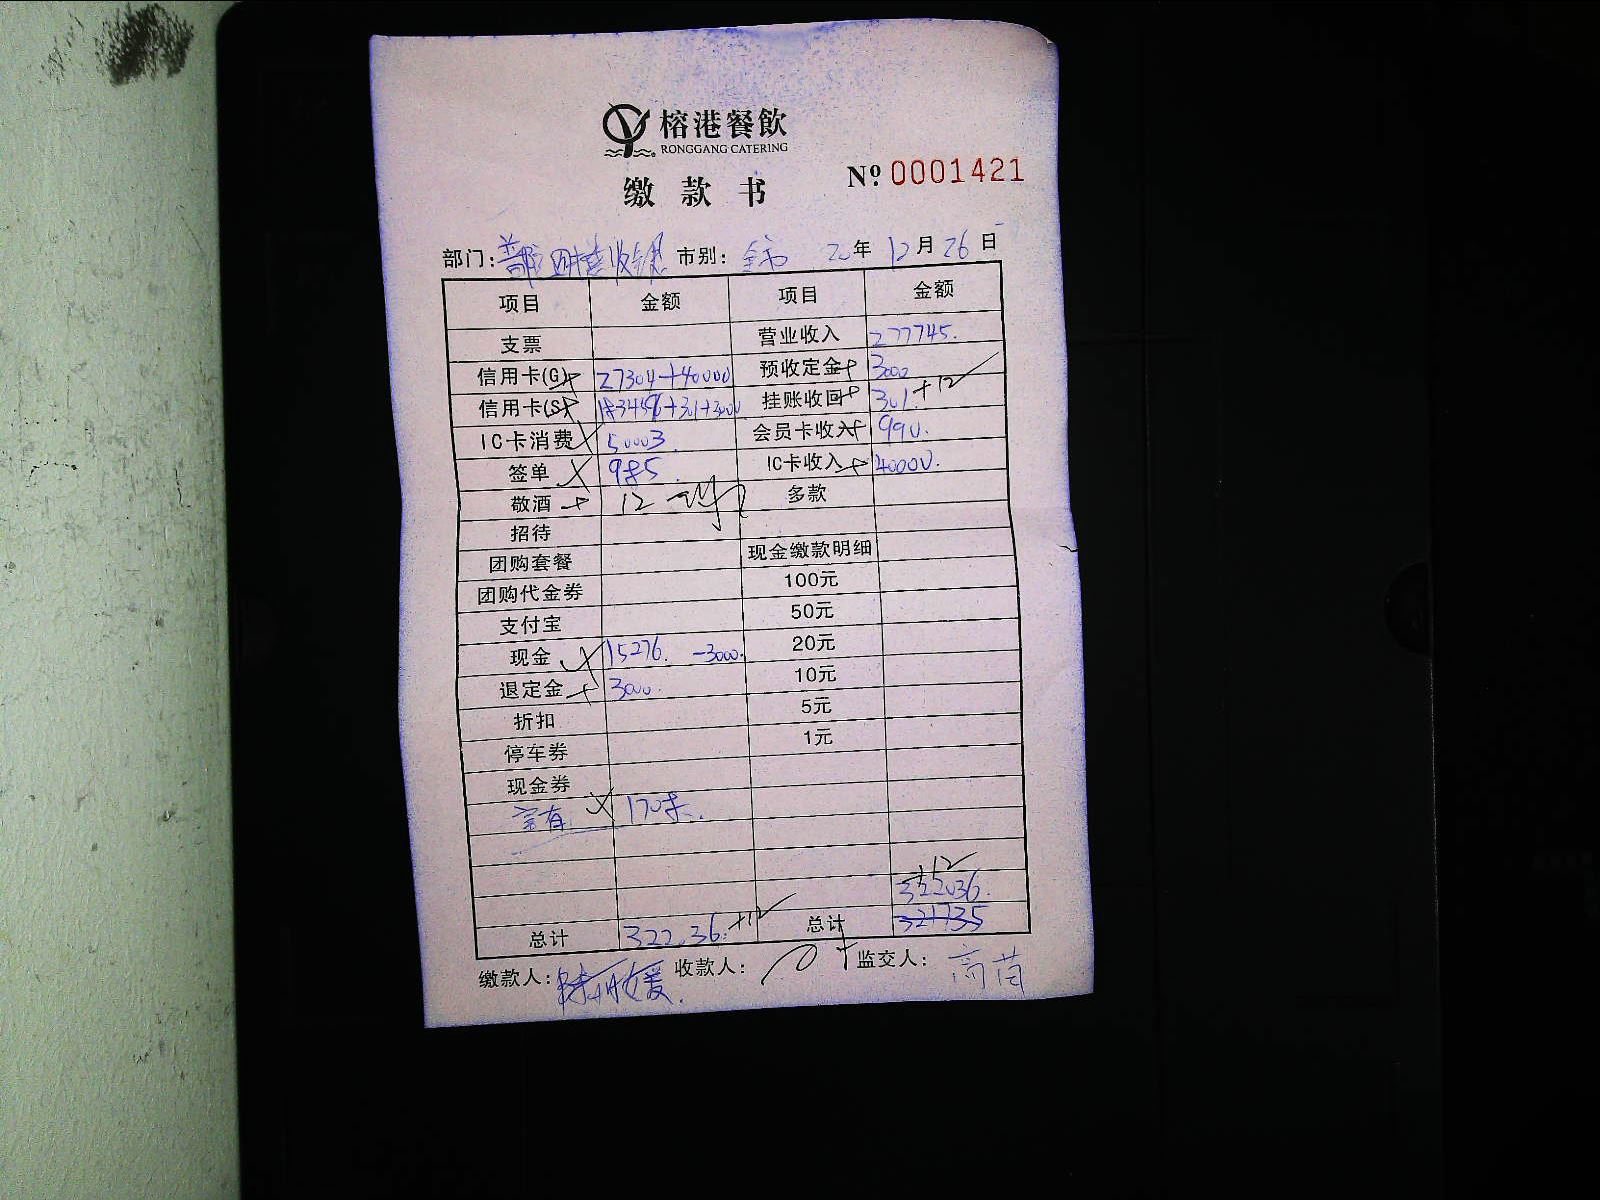 榕港餐飲
RONGGANG CATERING
缴款书
№ 0001421
部门: 收银 市别: 全市 20年 12月 26日
项目 金额 项目 金额
支票 营业收入 277745.
信用卡(G) 27304+40000 预收定金 3000
信用卡(S) +301+3000 挂账收回 301. +12
IC卡消费 50003. 会员卡收入 990.
签单 985. IC卡收入 40000.
敬酒 12 多款
招待
团购套餐 现金缴款明细
团购代金券 100元
支付宝 50元
现金 15276. -3000. 20元
退定金 3000. 10元
折扣 5元
停车券 1元
现金券
+12
322036.
总计 322036. +12 总计 321735
缴款人: 收款人: 监交人: 高苗